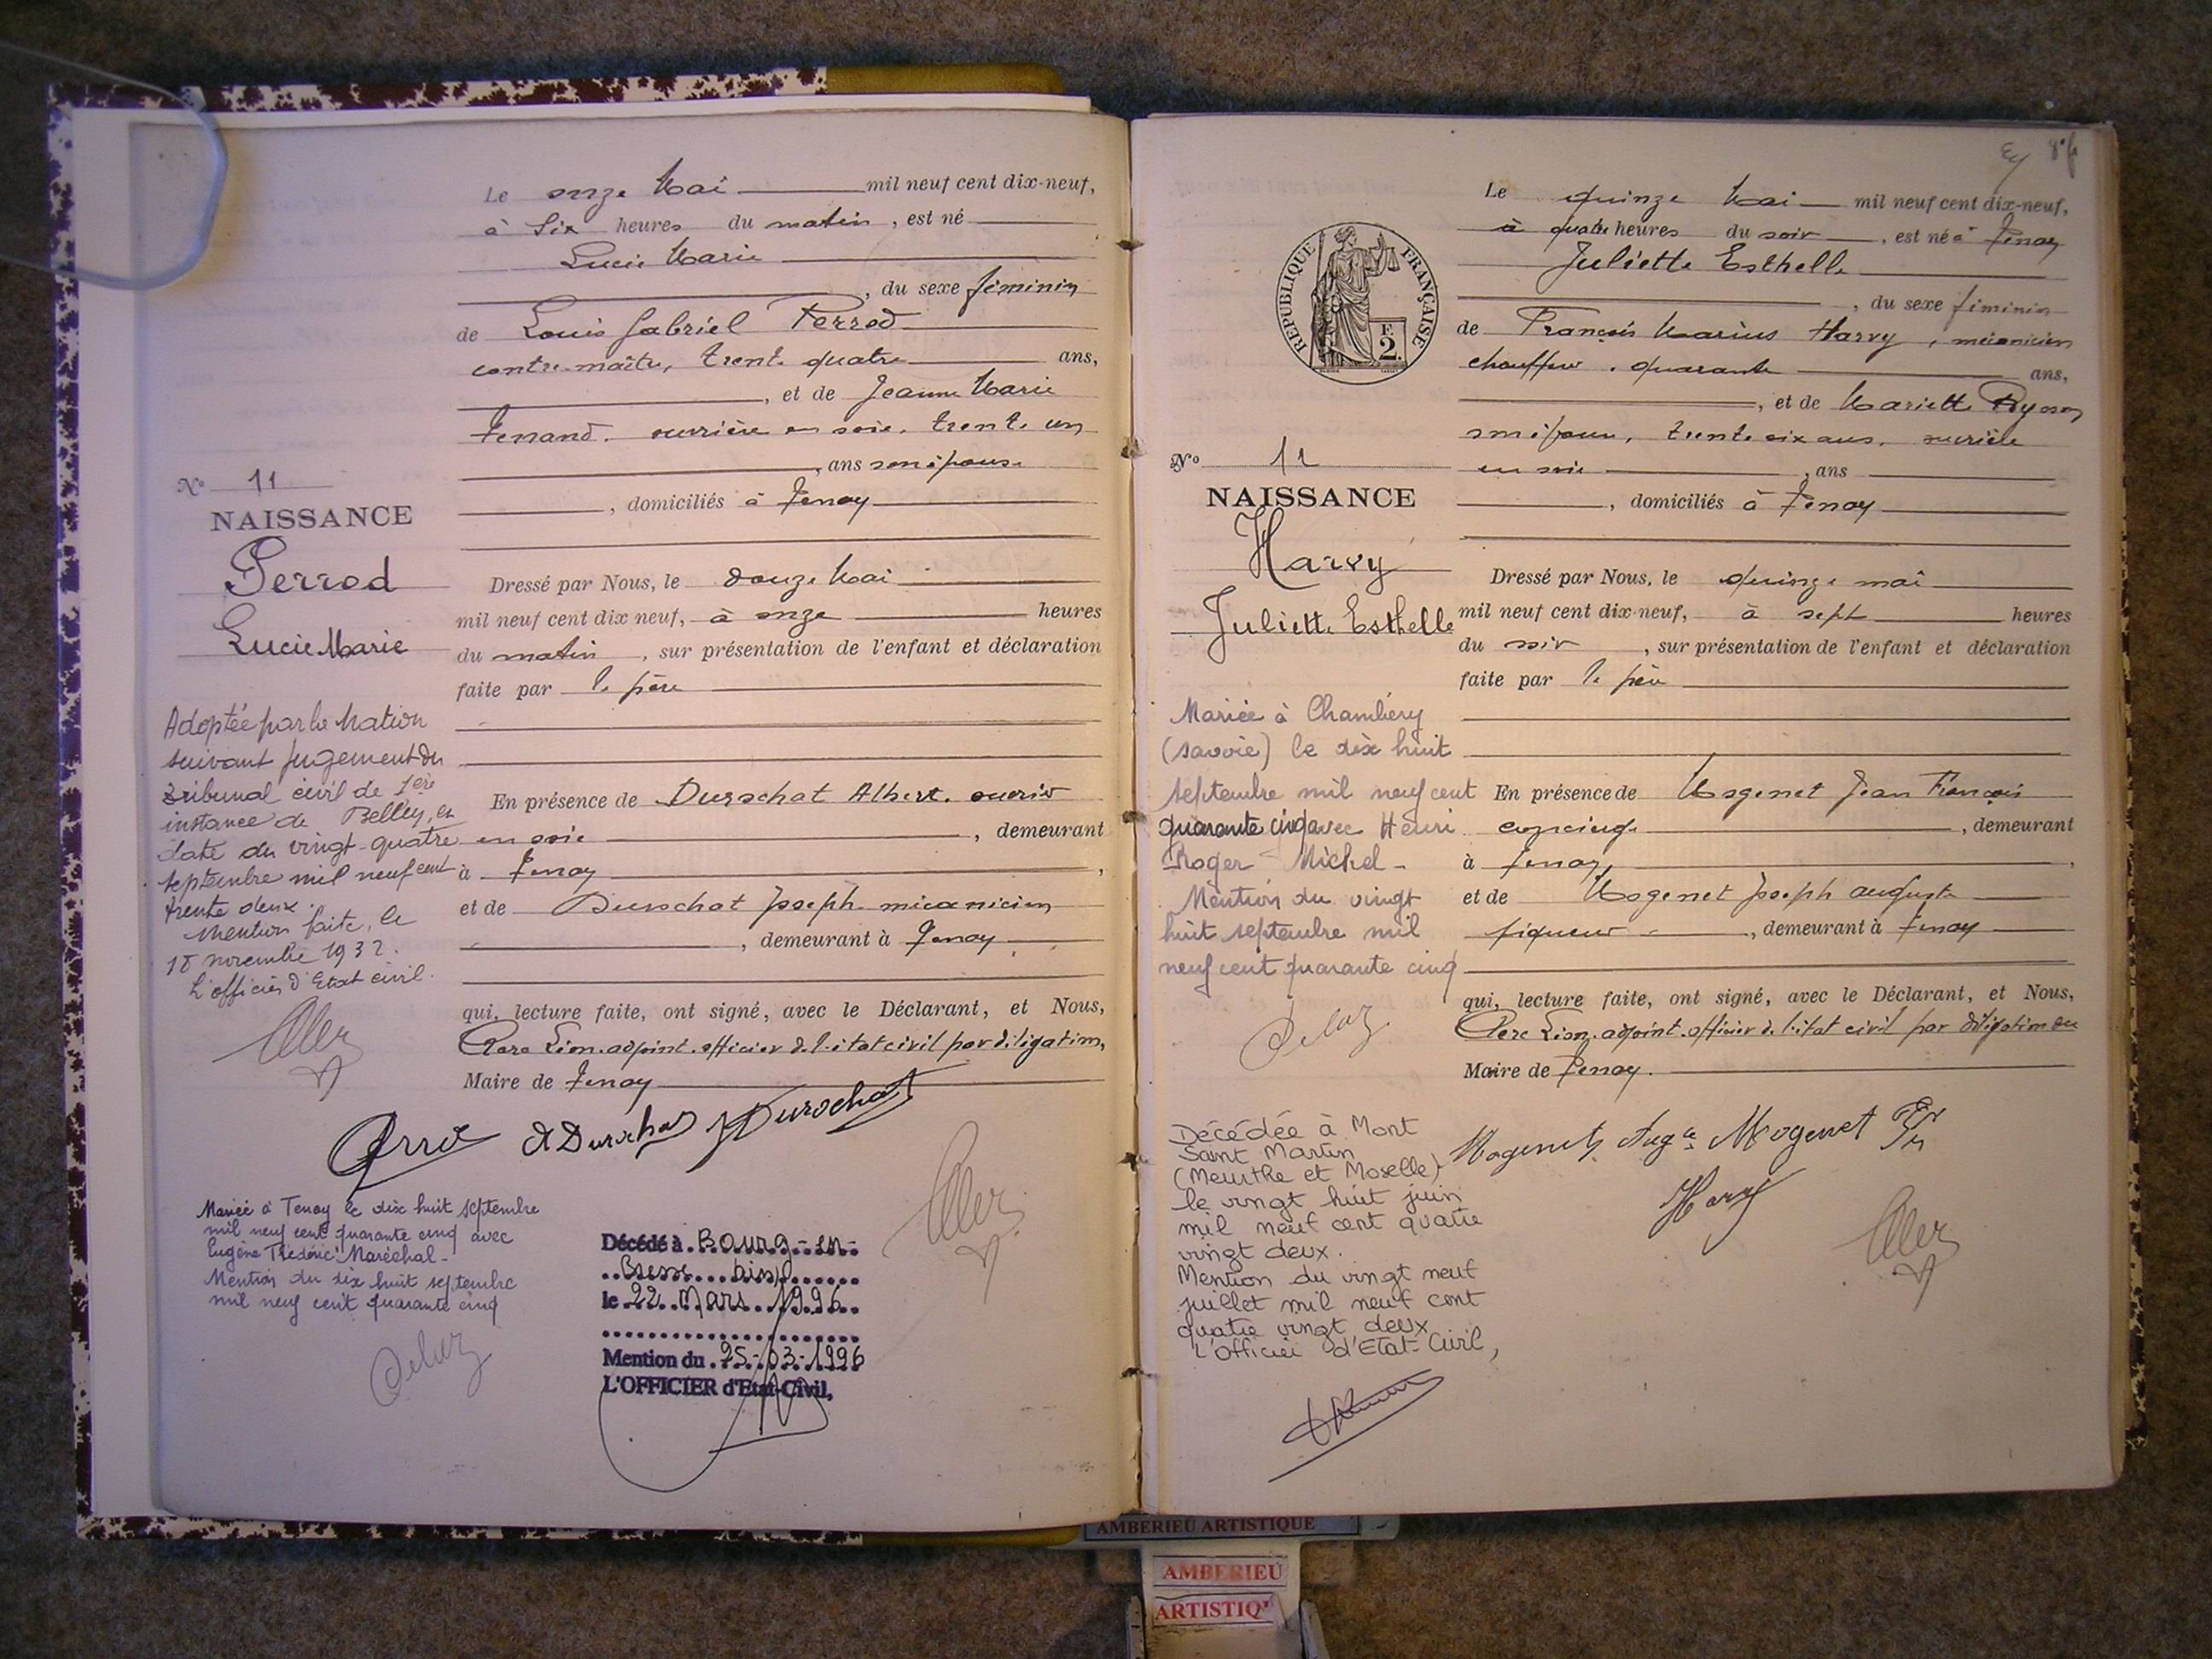 Le onze Mai mil neuf cent dix-neuf,
à Six heures du matin, est né
Lucie Marie
, du sexe féminin
de Louis Gabriel Perrod
contre-maître, trente quatre ans,
, et de Jeanne Marie
Tenand. ouvrière en soie. trente un
, ans son épouse
, domiciliés à Tenay
N° 11
NAISSANCE
Perrod
Lucie Marie
Dressé par Nous, le douze Mai
mil neuf cent dix neuf, à onze heures
du matin, sur présentation de l'enfant et déclaration
faite par le père
Adoptée par la Nation
suivant jugement du
tribunal civil de 1ère
instance de Belley, en
date du vingt-quatre
septembre mil neuf cent
trente deux.
Mention faite, le
18 novembre 1932.
L'officier d'Etat civil.
En présence de Durochat Albert. ouvrier
en soie, demeurant
à Tenay,
et de Durochat Joseph mécanicien
, demeurant à Tenay
qui, lecture faite, ont signé, avec le Déclarant, et Nous,
adjoint. officier de l'état civil par délégation,
Maire de Tenay
A Durochat J Durochat
Mariée à Tenay le dix huit septembre
mil neuf cent quarante cinq avec
Eugène Frédéric Maréchal-
Mention du dix huit septembre
mil neuf cent quarante cinq
Décédé à Bourg-en-
Bresse
le 22 Mars 1996
Mention du 25-03-1996
L'OFFICIER d'Etat-Civil,
Le quinze Mai mil neuf cent dix-neuf,
à quatre heures du soir, est né à Tenay
Juliette Esthelle
, du sexe féminin
REPUBLIQUE FRANÇAISE
F. 2.
de François Marius Harvy, mécanicien
chauffeur. quarante ans,
, et de Mariette
son épouse, trente six ans. ouvrière
en soie, ans
, domiciliés à Tenay
N° 12
NAISSANCE
Harvy
Juliette Esthelle
Dressé par Nous, le quinze mai
mil neuf cent dix-neuf, à sept heures
du soir, sur présentation de l'enfant et déclaration
faite par le père
Mariée à Chambéry
(Savoie) le dix huit
septembre mil neuf cent
quarante cinq avec Henri
Roger Michel-
Mention du vingt
huit septembre mil
neuf cent quarante cinq
En présence de Mogenet Jean François
concierge, demeurant
à Tenay,
et de Mogenet Joseph auguste
piqueur, demeurant à Tenay
qui, lecture faite, ont signé, avec le Déclarant, et Nous,
adjoint. officier de l'état civil par délégation du
Maire de Tenay.
Mogenet Aug te Mogenet
Harvy
Décédée à Mont
Saint Martin
(Meurthe et Moselle)
le vingt huit juin
mil neuf cent quatre
vingt deux.
Mention du vingt neuf
juillet mil neuf cent
quatre vingt deux
L'Officier d'Etat-Civil,
AMBERIEU ARTISTIQUE
AMBERIEU
ARTISTIQ